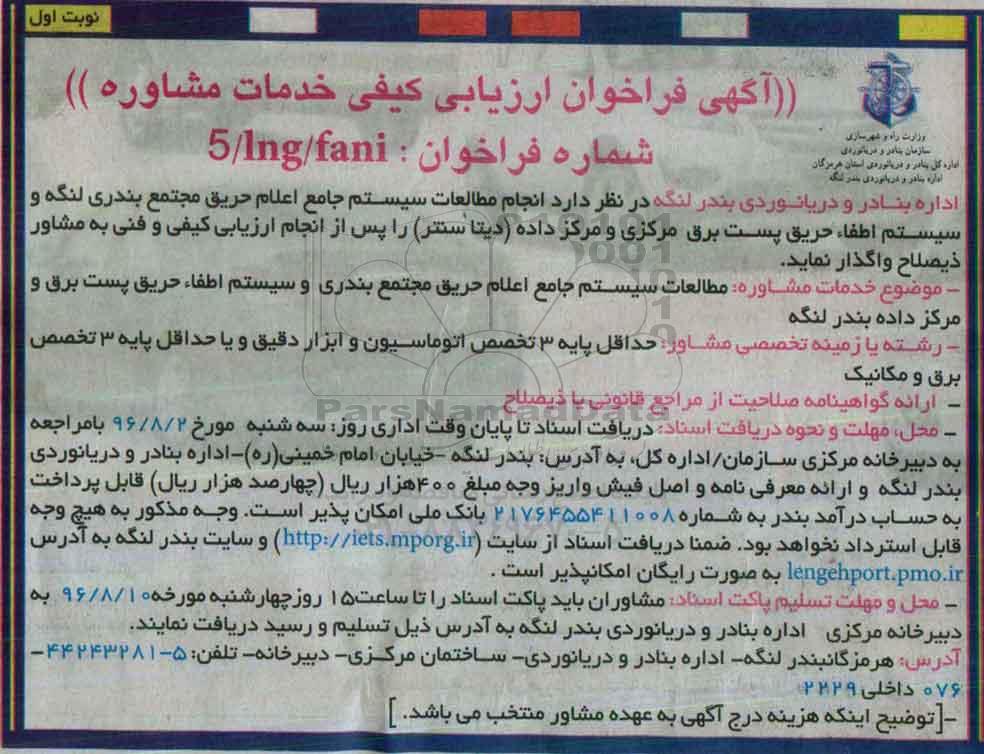 نوبت اول
((آگهی فراخوان ارزیابی کیفی خدمات مشاوره ))
شماره فراخوان : 5/lng/fani
وزارت راه و شهرسازی
سازمان بنادر و دریانوردی
اداره کل بنادر و دریانوردی استان هرمزگان
اداره بنادر و دریانوردی بندر لنگه
اداره بنادر و دریانوردی بندر لنگه در نظر دارد انجام مطالعات سیستم جامع اعلام حریق مجتمع بندری لنگه و
سیستم اطفاء حریق پست برق مرکزی و مرکز داده (دیتا سنتر) را پس از انجام ارزیابی کیفی و فنی به مشاور
ذیصلاح واگذار نماید.
- موضوع خدمات مشاوره: مطالعات سیستم جامع اعلام حریق مجتمع بندری و سیستم اطفاء حریق پست برق و
مرکز داده بندر لنگه
- رشته یا زمینه تخصصی مشاور: حداقل پایه ۳ تخصص اتوماسیون و ابزار دقیق و یا حداقل پایه ۳ تخصص
برق و مکانیک
- ارائه گواهینامه صلاحیت از مراجع قانونی با ذیصلاح
ParsNamadData
- محل، مهلت و نحوه دریافت اسناد: دریافت اسناد تا پایان وقت اداری روز: سه شنبه مورخ ۹۶/۸/۲ بامراجعه
به دبیرخانه مرکزی سازمان/اداره کل، به آدرس: بندر لنگه -خیابان امام خمینی(ره)-اداره بنادر و دریانوردی
بندر لنگه و ارائه معرفی نامه و اصل فیش واریز وجه مبلغ ۴۰۰هزار ریال (چهارصد هزار ریال) قابل پرداخت
به حساب درآمد بندر به شماره ۲۱۷۶۴۵۵۴۱۱۰۰۸ بانک ملی امکان پذیر است. وجه مذکور به هیچ وجه
قابل استرداد نخواهد بود. ضمنا دریافت اسناد از سایت (http://iets.mporg.ir) و سایت بندر لنگه به آدرس
lengehport.pmo.ir به صورت رایگان امکانپذیر است .
- محل و مهلت تسلیم پاکت اسناد: مشاوران باید پاکت اسناد را تا ساعت۱۵ روزچهارشنبه مورخه۹۶/۸/۱۰ به
دبیرخانه مرکزی اداره بنادر و دریانوردی بندر لنگه به آدرس ذیل تسلیم و رسید دریافت نمایند.
آدرس: هرمزگانبندر لنگه- اداره بنادر و دریانوردی- ساختمان مرکزی- دبیرخانه- تلفن: ۵-۴۴۲۴۳۲۸۱-
۰۷۶ داخلی ۲۲۲۹
-[توضیح اینکه هزینه درج آگهی به عهده مشاور منتخب می باشد. ]